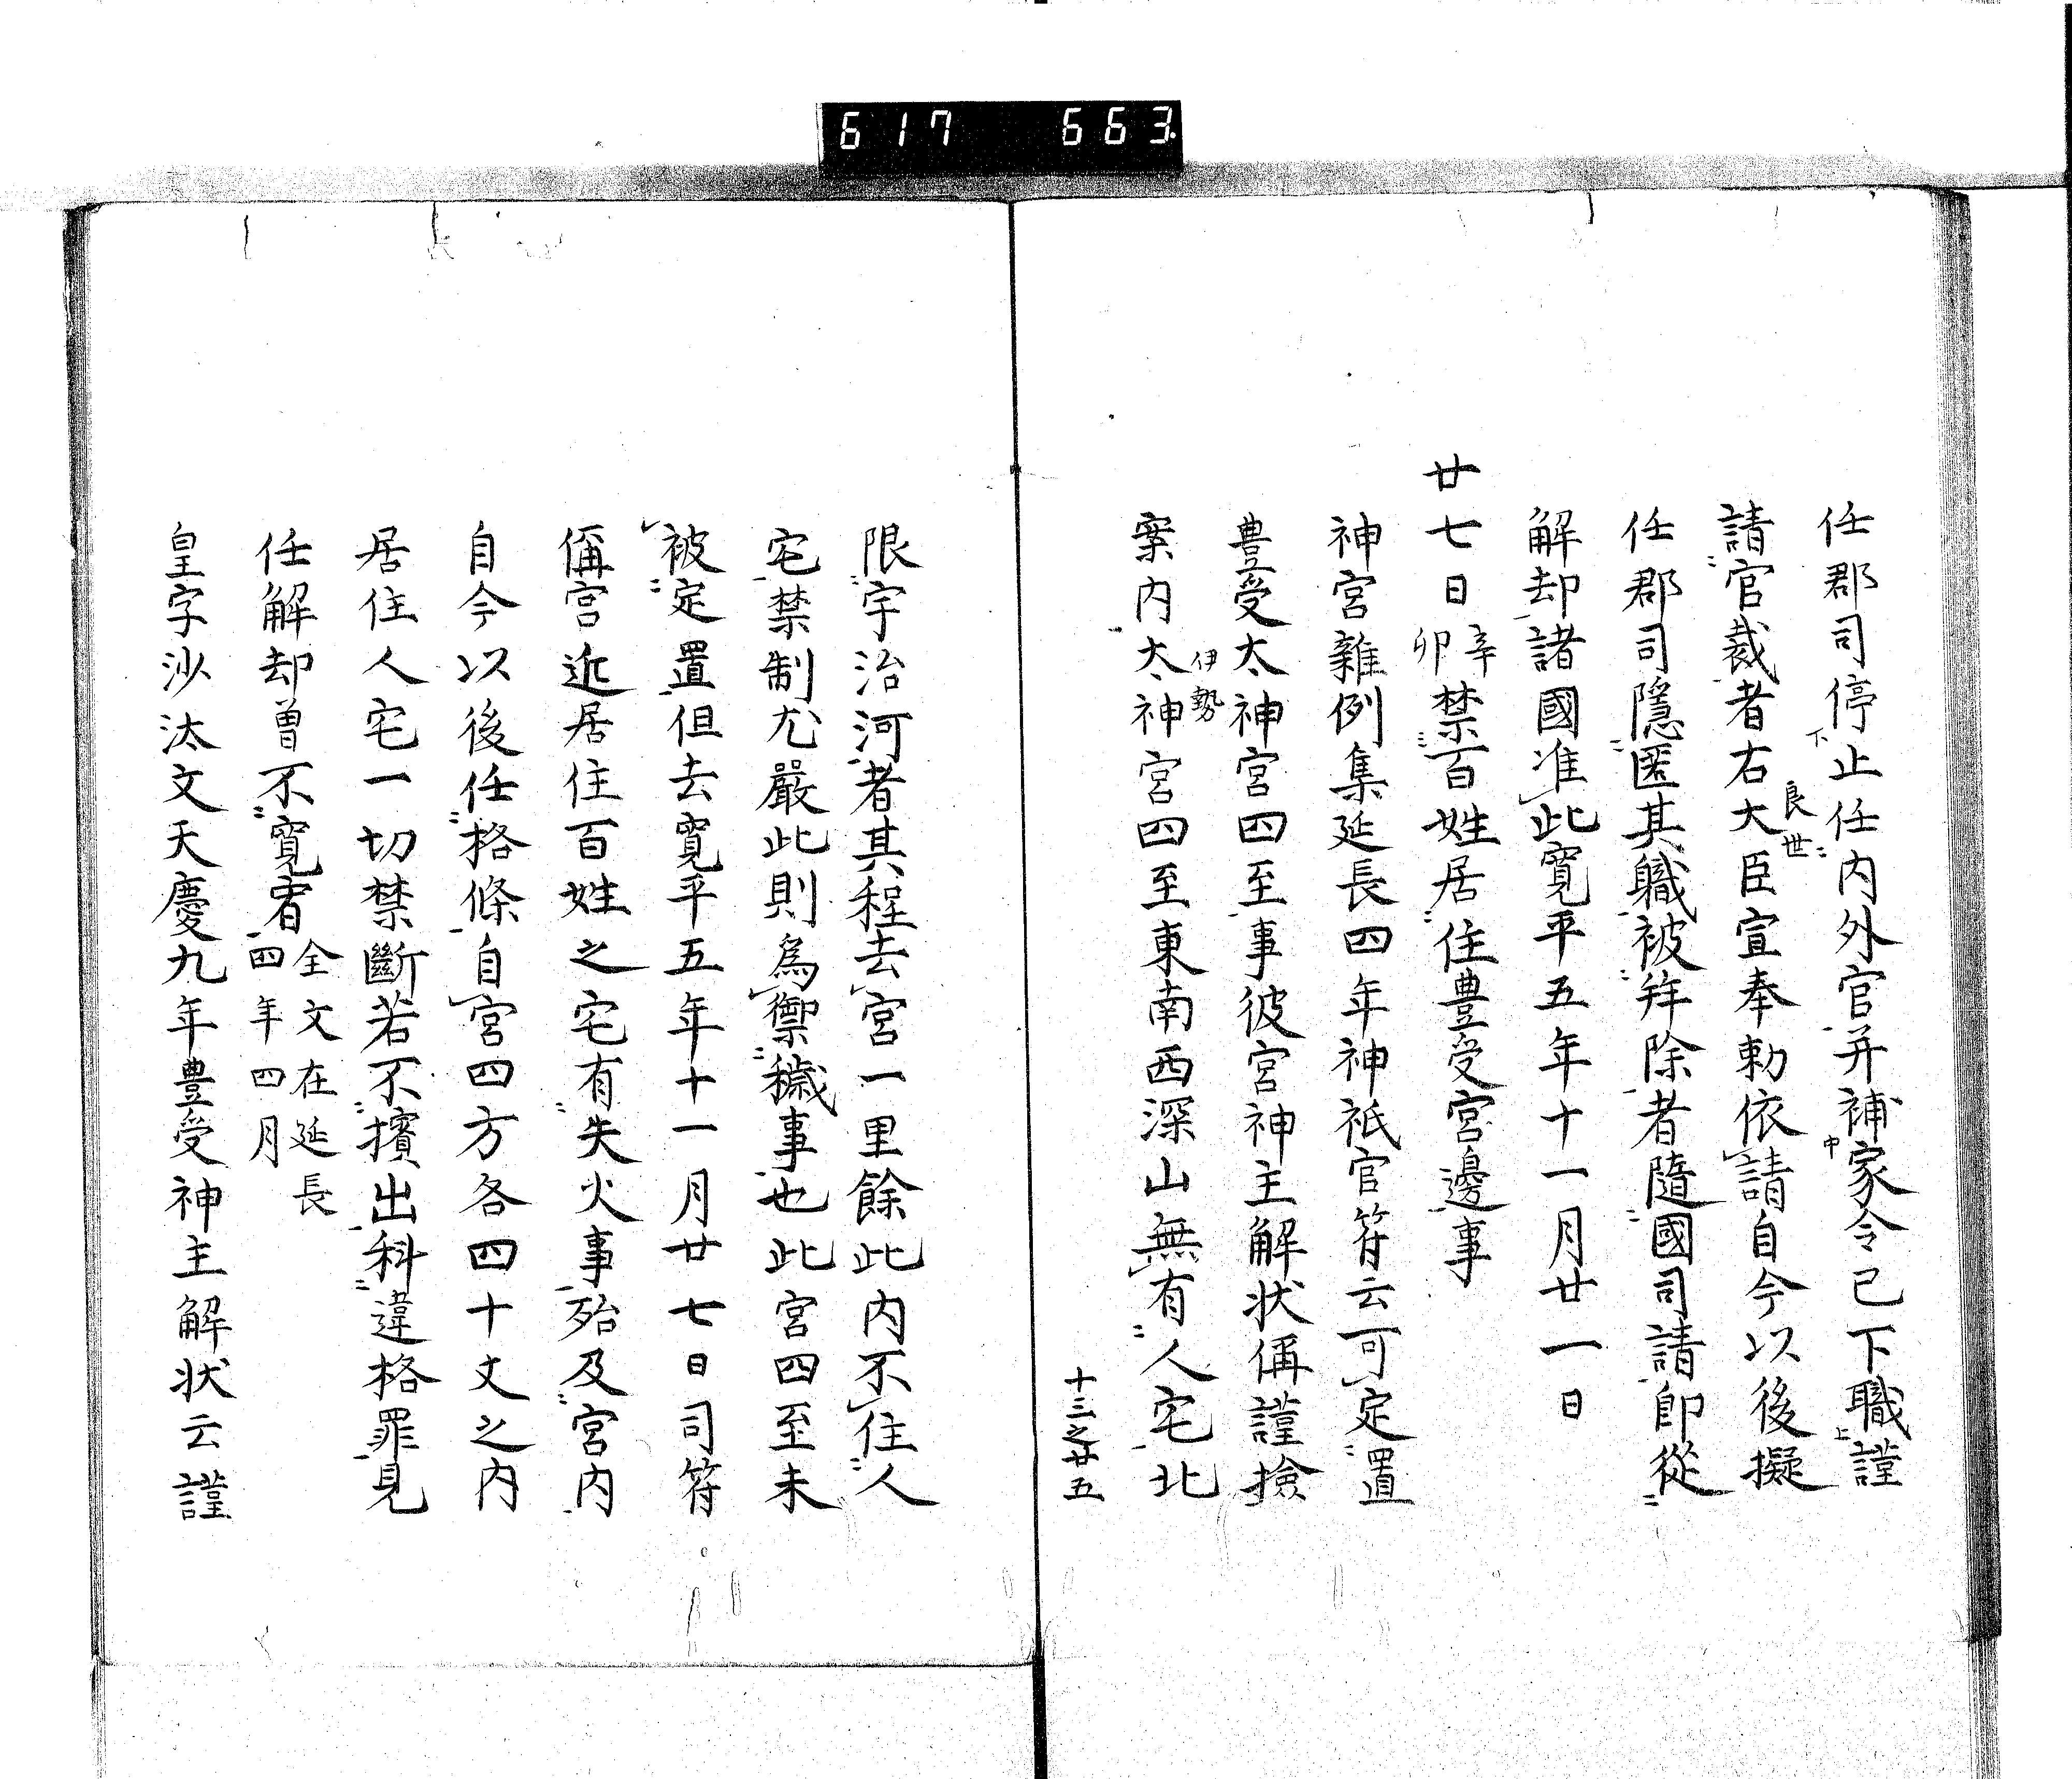 617 663
任郡司停止任内外官并補家令已下職謹
請官裁者右大臣宣奉勅依請自今以後擬
良世
任郡司隱匿其職被拜除者隨國司請即從
解却諸國准此寛平五年十一月廿一日
廿七日辛卯禁百姓居住豊受宮邊事
神宮雜例集延長四年神祇官符云可定置
豊受太神宮四至事彼宮神主解状偁謹撿
案内太神宮四至東南西深山無有人宅北
伊勢
十三之廿五
限宇治河者其程去宮一里餘此内不住人
宅禁制尤嚴此則為御穢事也此宮四至未
被定置但去寛平五年十一月廿七日司符
偁宮近居住百姓之宅有失火事殆及宮内
自今以後任格條自宮四方各四十丈之内
居住人宅一切禁斷若不擯出科違格罪見
任解却曽不寛宥全文在延長四年四月
皇字沙汰文天慶九年豊受神主解状云謹